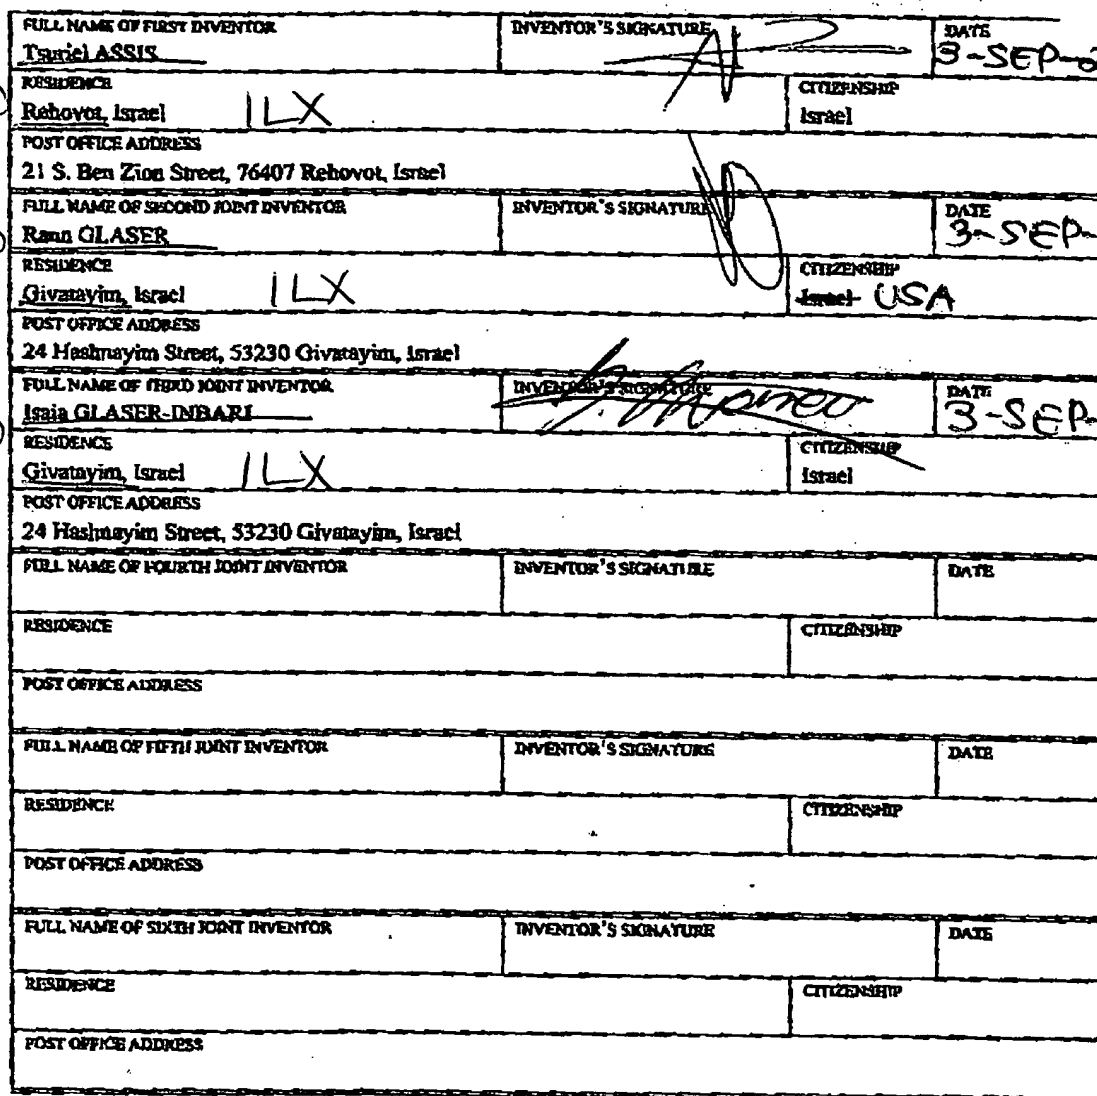 FULL NAME OF FIRST INVENTOR INVENTOR'S SIGNATURE DATE
Tsuriel ASSIS 3-SEP-
RESIDENCE CITIZENSHIP
Rehovot, Israel ILX Israel
POST OFFICE ADDRESS
21 S. Ben Zion Street, 76407 Rehovot, Israel
FULL NAME OF SECOND JOINT INVENTOR INVENTOR'S SIGNATURE DATE
Rann GLASER 3-SEP-
RESIDENCE CITIZENSHIP
Givatayim, Israel ILX Israel USA
POST OFFICE ADDRESS
24 Hashnayim Street, 53230 Givatayim, Israel
FULL NAME OF THIRD JOINT INVENTOR INVENTOR'S SIGNATURE DATE
Isaia GLASER-INBARI 3-SEP-
RESIDENCE CITIZENSHIP
Givatayim, Israel ILX Israel
POST OFFICE ADDRESS
24 Hashnayim Street, 53230 Givatayim, Israel
FULL NAME OF FOURTH JOINT INVENTOR INVENTOR'S SIGNATURE DATE
RESIDENCE CITIZENSHIP
POST OFFICE ADDRESS
FULL NAME OF FIFTH JOINT INVENTOR INVENTOR'S SIGNATURE DATE
RESIDENCE CITIZENSHIP
POST OFFICE ADDRESS
FULL NAME OF SIXTH JOINT INVENTOR INVENTOR'S SIGNATURE DATE
RESIDENCE CITIZENSHIP
POST OFFICE ADDRESS